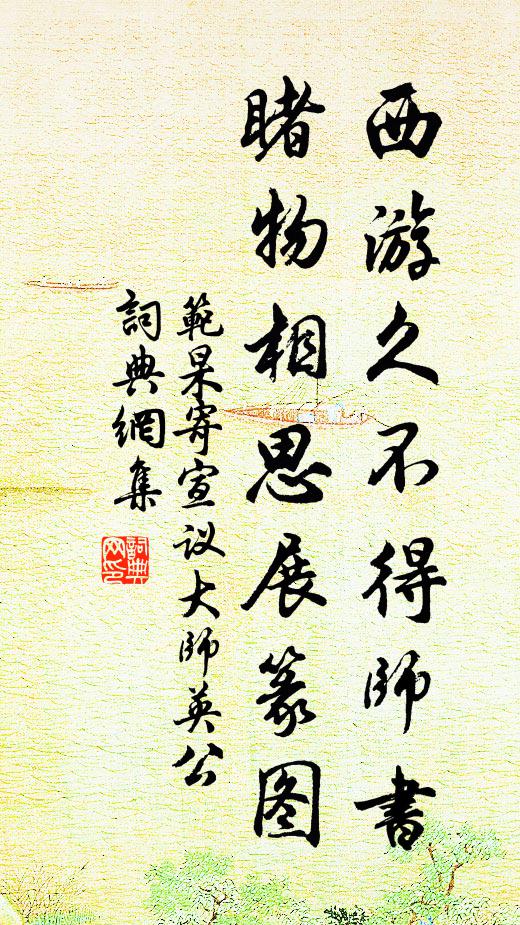 西游久不得师書
睹物相思展篆图
範杲寄宣议大师英公
詞典網集
詞典网印